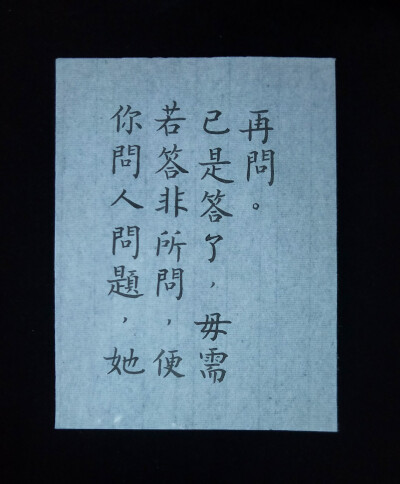 你問人問題，她
若答非所問，便
已是答了，毋需
再問。